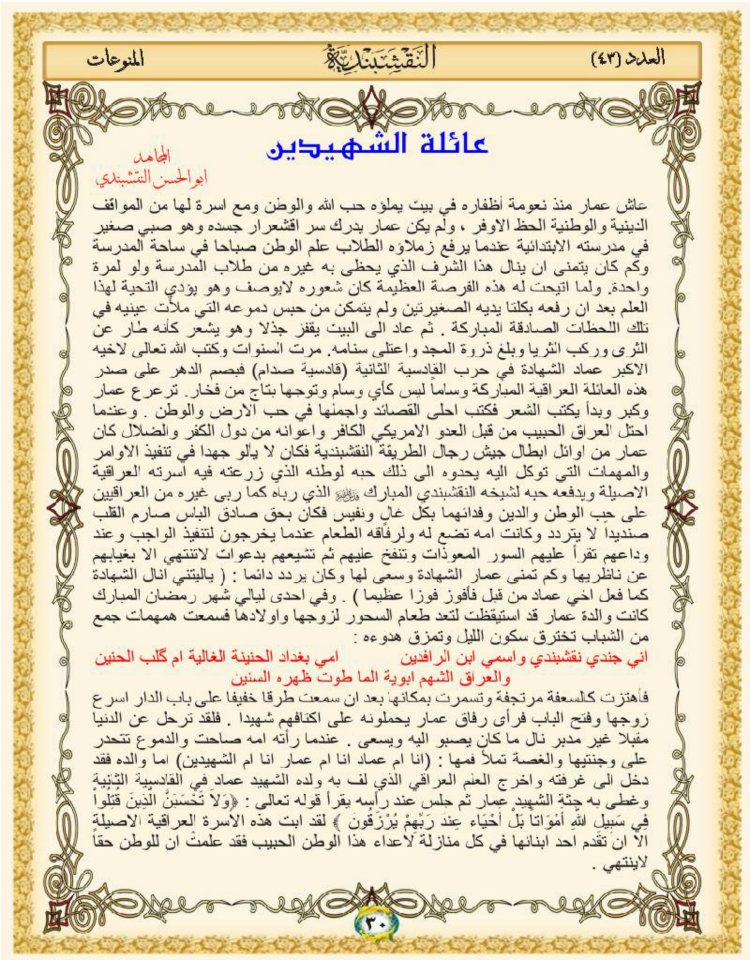 العدد (٤٣)
النقشبندية
المنوعات
عائلة الشهيدين
المجاهد
ابو الحسن النقشبندي
عاش عمار منذ نعومة أظفاره في بيت يملؤه حب الله والوطن ومع اسرة لها من المواقف
الدينية والوطنية الحظ الاوفر ، ولم يكن عمار يدرك سر اقشعرار جسده وهو صبي صغير
في مدرسته الابتدائية عندما يرفع زملاؤه الطلاب علم الوطن صباحا في ساحة المدرسة
وكم كان يتمنى ان ينال هذا الشرف الذي يحظى به غيره من طلاب المدرسة ولو لمرة
واحدة. ولما اتيحت له هذه الفرصة العظيمة كان شعوره لايوصف وهو يؤدي التحية لهذا
العلم بعد ان رفعه بكلتا يديه الصغيرتين ولم يتمكن من حبس دموعه التي ملأت عينيه في
تلك اللحظات الصادقة المباركة . ثم عاد الى البيت يقفز جذلا وهو يشعر كأنه طار عن
الثرى وركب الثريا وبلغ ذروة المجد واعتلى سنامه. مرت السنوات وكتب الله تعالى لاخيه
الاكبر عماد الشهادة في حرب القادسية الثانية (قادسية صدام) فبصم الدهر على صدر
هذه العائلة العراقية المباركة وساماً ليس كأي وسام وتوجها بتاج من فخار. ترعرع عمار
وكبر وبدأ يكتب الشعر فكتب احلى القصائد واجملها في حب الارض والوطن . وعندما
احتل العراق الحبيب من قبل العدو الامريكي الكافر واعوانه من دول الكفر والضلال كان
عمار من اوائل ابطال جيش رجال الطريقة النقشبندية فكان لا يألو جهدا في تنفيذ الاوامر
والمهمات التي توكل اليه يحدوه الى ذلك حبه لوطنه الذي زرعته فيه اسرته العراقية
الاصيلة ويدفعه حبه لشيخه النقشبندي المبارك الذي رباه كما ربى غيره من العراقيين
على حب الوطن والدين وفدائهما بكل غالٍ ونفيس فكان بحق صادق الباس صارم القلب
صنديدا لا يتردد وكانت امه تضع له ولرفاقه الطعام عندما يخرجون لتنفيذ الواجب وعند
وداعهم تقرأ عليهم السور المعوذات وتنفخ عليهم ثم تشيعهم بدعوات لاتنتهي الا بغيابهم
عن ناظريها وكم تمنى عمار الشهادة وسعى لها وكان يردد دائما : ( ياليتني انال الشهادة
كما فعل اخي عماد من قبل فأفوز فوزا عظيما ) . وفي احدى ليالي شهر رمضان المبارك
كانت والدة عمار قد استيقظت لتعد طعام السحور لزوجها واولادها فسمعت همهمات جمع
من الشباب تخترق سكون الليل وتمزق هدوءه :
اني جندي نقشبندي واسمي ابن الرافدين امي بغداد الحنينة الغالية ام گلب الحنين
والعراق الشهم ابوية الما طوت ظهره السنين
فأهتزت كالسعفة مرتجفة وتسمرت بمكانها بعد ان سمعت طرقا خفيفا على باب الدار اسرع
زوجها وفتح الباب فرأى رفاق عمار يحملونه على اكتافهم شهيدا . فلقد ترحل عن الدنيا
مقبلا غير مدبر نال ما كان يصبو اليه ويسعى . عندما رأته امه صاحت والدموع تتحدر
على وجنتيها والغصة تملأ فمها : (انا ام عماد انا ام عمار انا ام الشهيدين) اما والده فقد
دخل الى غرفته واخرج العلم العراقي الذي لف به ولده الشهيد عماد في القادسية الثانية
وغطى به جثة الشهيد عمار ثم جلس عند رأسه يقرأ قوله تعالى : ﴿وَلَا تَحْسَبَنَّ الَّذِينَ قُتِلُواْ
فِي سَبِيلِ اللّهِ أَمْوَاتاً بَلْ أَحْيَاء عِندَ رَبِّهِمْ يُرْزَقُونَ ﴾ لقد ابت هذه الاسرة العراقية الاصيلة
الا ان تقدم احد ابنائها في كل منازلة لاعداء هذا الوطن الحبيب فقد علمت ان للوطن حقاً
لاينتهي .
٣٠